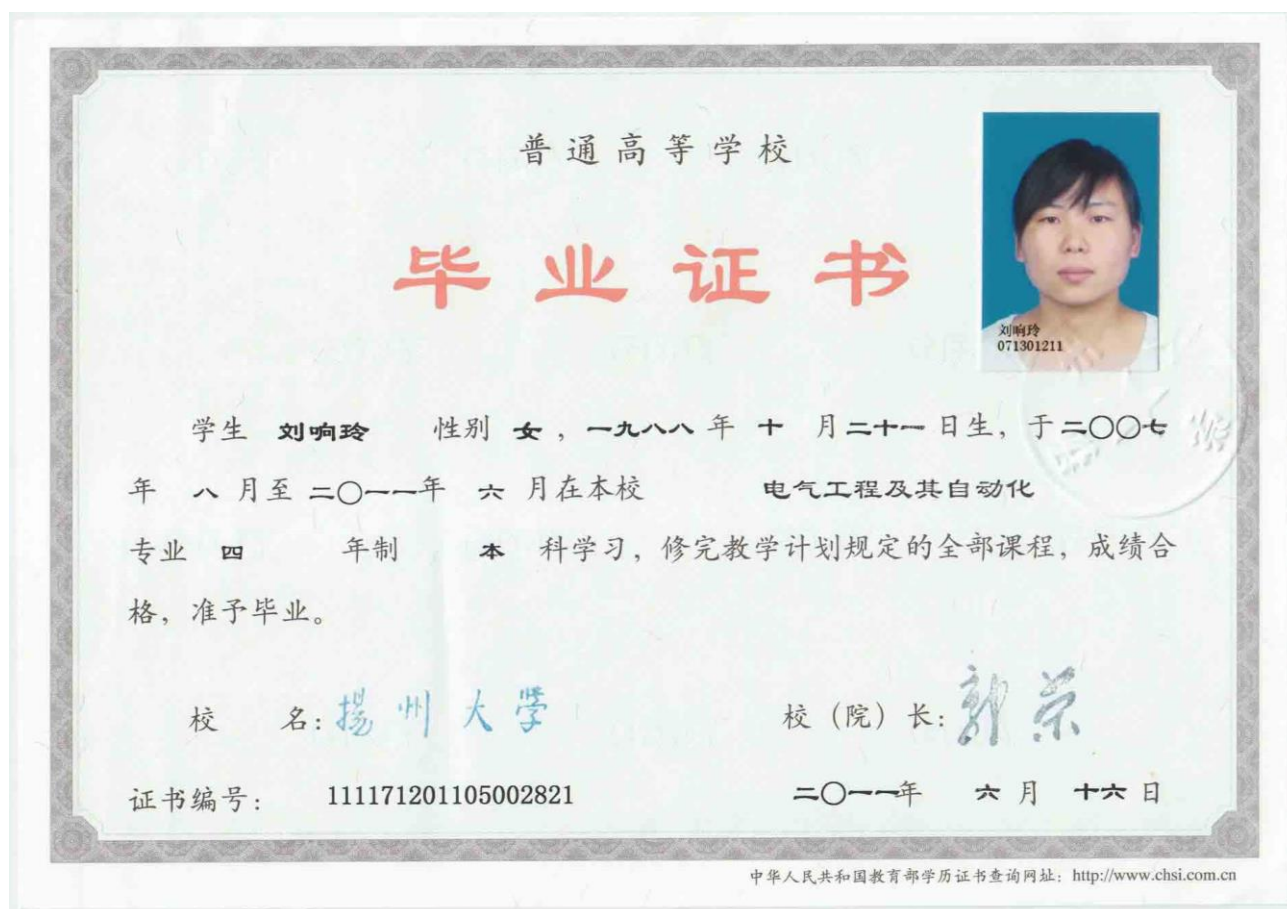 普通高等学校
毕业证书
刘响玲
071301211
学生 刘响玲 性别 女，一九八八年 十 月二十一日生，于二〇〇七
年 八 月至 二〇一一年 六 月在本校 电气工程及其自动化
专业 四 年制 本 科学习，修完教学计划规定的全部课程，成绩合
格，准予毕业。
校 名：揚州大学 校（院）长：郭荣
证书编号： 111171201105002821 二〇一一年 六 月 十六 日
中华人民共和国教育部学历证书查询网址：http://www.chsi.com.cn